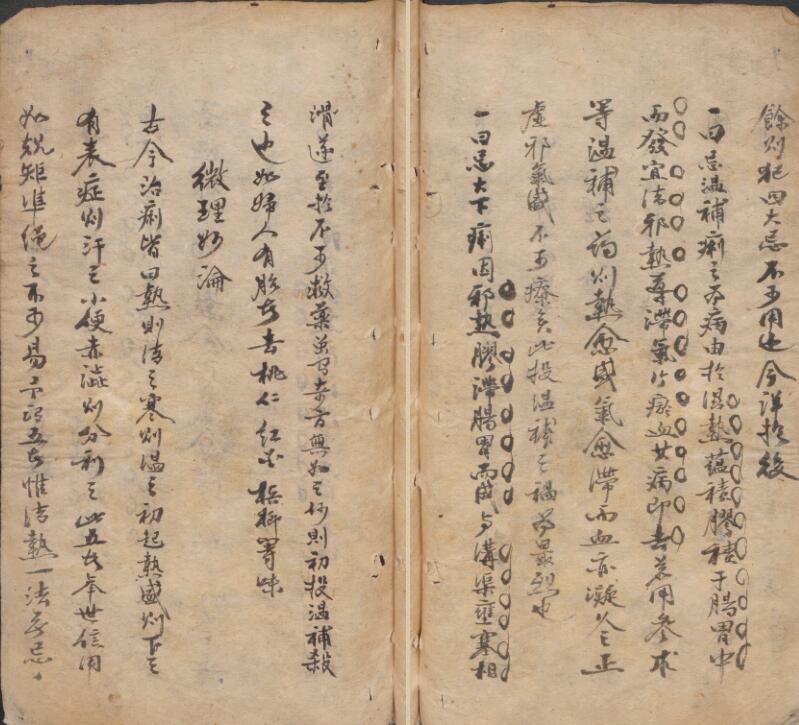 餘則犯四大忌不可用也今詳於後
一曰忌温補痢之为病由於濕熱蘊積膠積于腸胃中
而發宜清邪熱導滯氣行瘀血其病即去若用參朮
等温補之药則熱愈盛氣愈滯而血亦凝久之正
虛邪氣盛不可療矣此投温補之禍为最烈也
一曰忌大下痢因邪熱膠滯腸胃而成与溝渠壅塞相
滑遂至於不可救藥
奇方無如之何則初投温補殺
之也如婦人有胎者去桃仁红花梹榔等味
微理妙論
古今治痢皆曰熱則清之寒則温之初起熱盛則下之
有表症則汗之小便赤澁則分利之此五者举世信用
如規矩準绳之不可易予謂五者惟清熱一法无忌